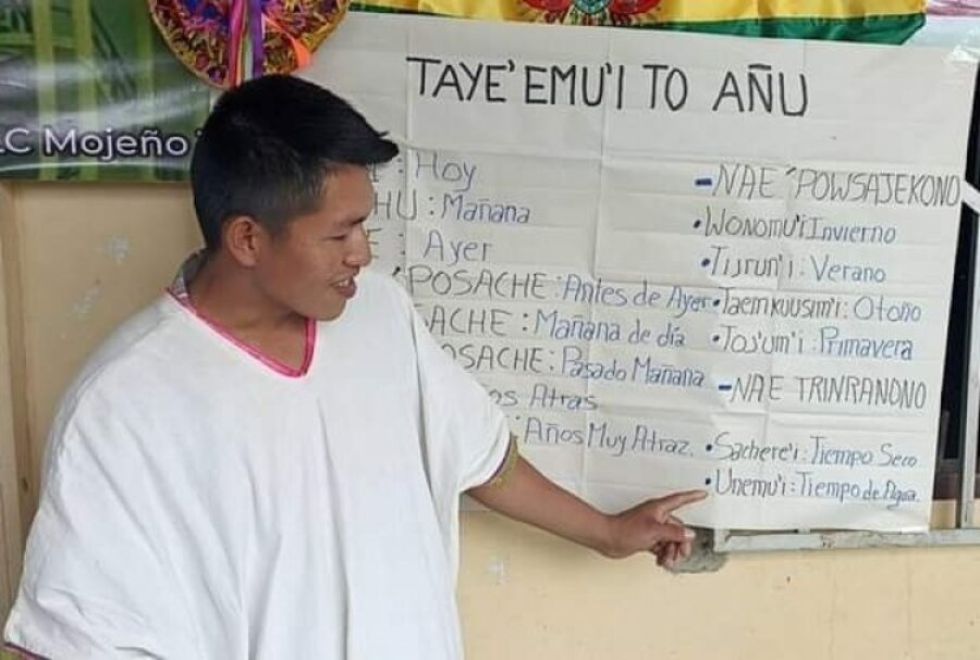 LC Mojeño
TAYE'EMU'I TO AÑU
: Hoy
HU : Mañana
: Ayer
'POSACHE : Antes de Ayer
SACHE : Mañana de día
OSACHE : Pasado Mañana
os Atras
: Años Muy Atraz.
- NAE ´POWSAJEKONO
• WONOMU'i Invierno
• Tijrun'i : Verano
• Taemkuusim'i : Otoño
• Tos'um'i : Primavera
- NAE TRINRANONO
• Sachere'i : Tiempo Seco
• Unemu'i : Tiempo de Agua.